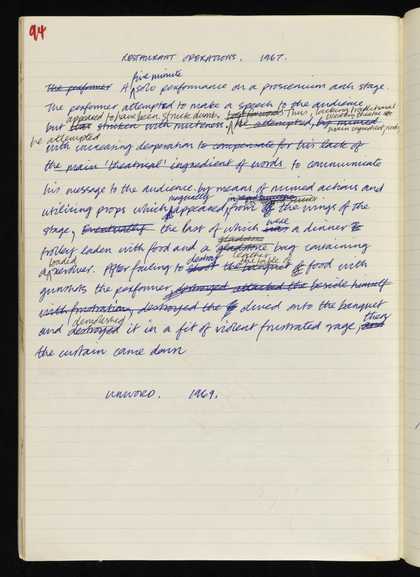 94
RESTAURANT OPERATIONS. 1967.
five minute
The performer A solo performance on a proscenium arch stage.
The performer attempted to make a speech to the audience
appeared to have been struck dumb. Thus, lacking traditional
but was stricken with muteness, he attempted,
main ingredient, words,
he attempted
with increasing desperation to compensate for his lack of
the main 'theatrical' ingredient of words. to communicate
his message to the audience by means of mimed actions and
magically
utilising props which appeared from the wings of the
stage, Eventually the last of which was a dinner
were
trolley laden with food and a gladstone bag containing
loaded
a revolver. After failing to shoot the banquet of food with
destroy
gunshots the performer, destroyed attacked the beside himself
with frustration, destroyed the dived onto the banquet
demolishing
and destroyed it in a fit of violent frustrated rage, and
the curtain came down
UNWORD. 1969.